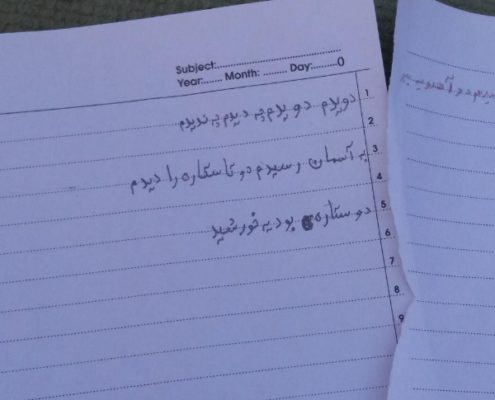 Subject:
Year: Month: Day: 0
1
دویدم دویدم چه دیدم چه ندیدم
2
3
به آسمان رسیدم دو تا ستاره را دیدم
4
5
دو ستاره بود یه خورشید
6
7
8
9